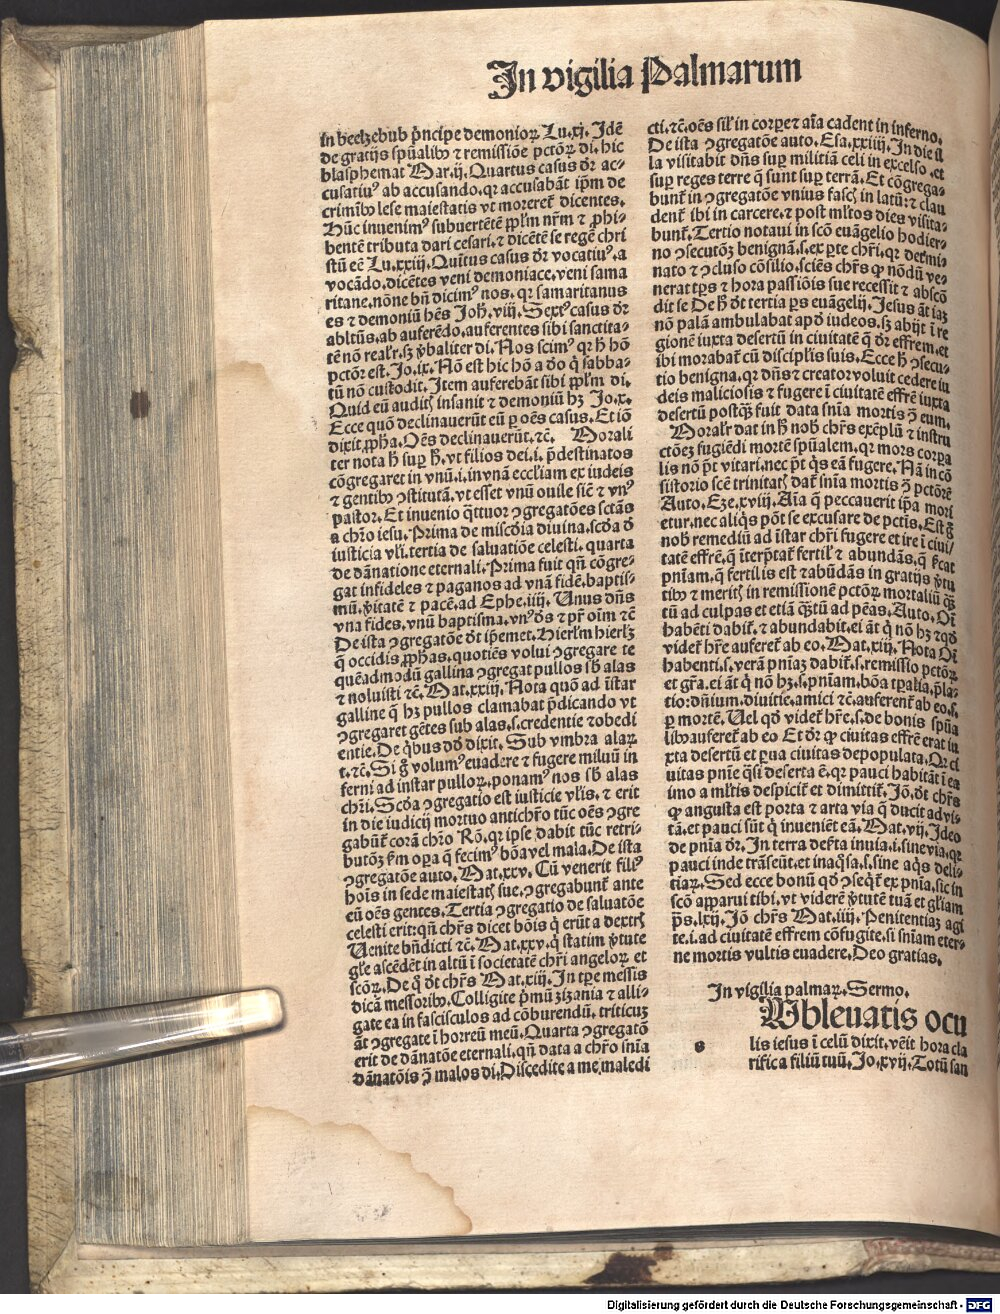 In vigilia Palmarum
in beelzebub p̄ncipe demonioꝝ Lu.xj. Idē
de gratijs spūalib⁹ ⁊ remissiōe pctōꝝ di. hic
blasphemat Mar.ij. Quartus casus dr̄ ac-
cusatiu⁹ ab accusando.qꝛ accusabāt ip̄m de
crimib⁹ lese maiestatis vt moreret᷑ dicentes.
Hūc inuenim⁹ subuertētē ppl̄m nr̄m ⁊ ꝓhi-
bentē tributa dari cesari.⁊ dicētē se regē chri
stū eē Lu.xxiij.Quītus casus dr̄ vocatiu⁹.a
vocādo.dicētes veni demoniace.veni sama
ritane.nōne bn̄ dicim⁹ nos.qꝛ samaritanus
es ⁊ demoniū hēs Joh̄.viij. Sext⁹ casus dr̄
abltūs.ab auferēdo.auferentes sibi sanctita-
tē nō real̓r.sꝫ v̓baliter di. Nos scim⁹ qꝛ h̄ hō
pctōr est. Jo.ix. Nō est hic hō a deo q̇ sabba-
tū nō custodit. Item auferebāt sibi ppl̄m di.
Quid eū auditꝭ insanit ⁊ demoniū hꝫ Jo.x.
Ecce quō declinauerūt eū ꝑ oēs casus. Et iō
dixit ꝓph̄a. Oēs declinauerūt.⁊c̄. Morali
ter nota h̄ suꝑ h̄.vt filios dei.i. p̄destinatos
cōgregaret in vnū.i.in vnā eccl̓iam ex iudeis
⁊ gentib⁹ ꝯstitutā.vt esset vnū ouile sic̄ ⁊ vn⁹
pastor. Et inuenio q̄ttuor ꝯgregatōes sctās
a chr̄o iesu. Prima de miscd̓ia diuina.scd̓a d̓
iusticia vl̓i.tertia de saluatiōe celesti. quarta
de dānatione eternali. Prima fuit qn̄ cōgre-
gat infideles ⁊ paganos ad vnā fidē.baptis-
mū.v̓itatē ⁊ pacē.ad Ephe.iiij. Unus dn̄s
vna fides.vnū baptisma.vn⁹ d̓s ⁊ pr̄ oīm ⁊c̄
De ista ꝯgregatōe dt̄ ip̄emet. Hierl̓m hierl̓ꝫ
q̄ occidis ꝓph̄as.quotiēs volui ꝯgregare te
quēadmodū gallina ꝯgregat pullos sb̄ alas
⁊ noluisti ⁊c̄. Mat.xxiij. Nota quō ad īstar
galline q̄ hꝫ pullos clamabat p̄dicando vt
ꝯgregaret gētes sub alas.s.credentie ⁊obedi
entie. De q̇bus dd̓ dixit. Sub vmbra alaꝝ
t.⁊c̄. Si g̊ volum⁹ euadere ⁊ fugere miluū in
ferni ad instar pulloꝝ.ponam⁹ nos sb̄ alas
chr̄i. Scd̓a ꝯgregatio est iusticie vl̓is.⁊ erit
in die iudicij mortuo antichr̄o tūc oēs ꝯgre
gabūt᷑ corā chr̄o Rō.qꝛ ipse dabit tūc retri-
butōꝫ ẜm oꝑa q̄ fecim⁹ bōa vel mala. De ista
ꝯgregatōe auto. Mat.xxv. Cū venerit fili⁹
hoīs in sede maiestatꝭ sue.ꝯgregabunt᷑ ante
eū oēs gentes. Tertia ꝯgregatio de saluatōe
celesti erit:qn̄ chr̄s dicet bōis q̇ erūt a dextrꝭ
Uenite bn̄dicti ⁊c̄. Mat.xxv.q̇ statim v̓tute
gl̓e ascēdēt in altū ī societatē chr̄i angeloꝝ et
scōꝝ. De q̇ dt̄ chr̄s Mat.xiij. In tꝑe messis
dicā messorib⁹.Colligite p̄mū zizania ⁊ alli-
gate ea in fasciculos ad cōburendū. triticuꝫ
āt ꝯgregate ī horreū meū. Quarta ꝯgregatō
erit de dānatōe eternali.qn̄ data a chr̄o sn̄ia
dānatōis ꝯ̄ malos di. Discedite a me maledi
cti.⁊c̄.oēs sil̓ in corꝑe⁊ aīa cadent in inferno.
De ista ꝯgregatōe auto. Esa.xxiiij. In die il
la visitabit dn̄s suꝑ militiā celi in excelso.et
suꝑ reges terre q̇ sunt suꝑ terrā. Et cōgrega-
bunt᷑ in ꝯgregatōe vnius fascꝭ in latū:⁊ clau
dent᷑ ibi in carcere.⁊ post ml̓tos dies visita-
bunt᷑. Tertio notaui in scō euāgelio hodier-
no ꝯsecutōꝫ benignā.s.ex ꝑte chr̄i.qꝛ det̓mi-
nato ⁊ ꝯcluso cōsilio.sciēs chr̄s ꝙ nōdū ve-
nerat tp̄s ⁊ hora passiōis sue recessit ⁊ abscō
dit se De h̄ dt̄ tertia ꝑs euāgelij. Jesus āt iaꝫ
nō palā ambulabat apd̓ iudeos.sꝫ abijt ī re
gionē iuxta desertū in ciuitatē q̄ dr̄ effrem.et
ibi morabat᷑ cū discipl̓is suis. Ecce h̄ ꝯsecu-
tio benigna.qꝛ dn̄s ⁊ creator voluit cedere iu
deis maliciosis ⁊ fugere ī ciuitatē effrē iuxta
desertū postqꝫ̄ fuit data sn̄ia mortis ꝯ̄ eum.
Moral̓r dat in h̄ nob̄ chr̄s exēplū ⁊ instru
ctōeꝫ fugiēdi mortē spūalem.qꝛ mors corꝑa
lis nō p̄t vitari.nec p̄t q̇s eā fugere. Nā in cō
sistorio scē trinitatꝭ dat᷑ sn̄ia mortis ꝯ̄ pctōrē
Auto. Eze.xviij. Aīa q̄ peccauerit ip̄a mori
etur.nec aliq̇s pōt se excusare de pctīs. Est g̊
nob̄ remediū ad īstar chr̄i fugere et ire ī ciui/
tatē effrē.q̄ īterp̄tat᷑ fertil̓ ⁊ abundās.q̄ ẜcat
pn̄iam.q̄ fertilis est ⁊abūdās in gratijs v̓tu
tib⁹ ⁊ meritꝭ in remissionē pctōꝝ mortaliū qꝫ̄
tū ad culpas et etiā qꝫ̄tū ad pēas. Auto. Oī
habēti dabit᷑.⁊ abundabit.ei āt q̇ nō hꝫ ⁊qd̓
videt᷑ hr̄e auferet᷑ ab eo. Mat.xiij. Nota Oī
habenti.s.verā pn̄iaꝫ dabit᷑.s.remissio pctōꝝ
et gr̄a.ei āt q̇ nō hꝫ.s.pn̄iam.bōa tꝑalia.p̄la-
tio:dn̄ium.diuitie.amici ⁊c̄.auferent᷑ ab eo.s.
ꝑ mortē. Uel qd̓ videt᷑ hr̄e.s.de bonis spūa
lib⁹ auferet᷑ ab eo Et dr̄ ꝙ ciuitas effrē erat iu
xta desertū et ꝑua ciuitas depopulata. Qꝛ ci
uitas pn̄ie q̄si deserta ē.qꝛ pauci habitāt ī ea
imo a ml̓tis despicit᷑ et dimittit᷑. Jō.dt̄ chr̄s
ꝙ angusta est porta ⁊ arta via q̄ ducit ad vi-
tā.et pauci sūt q̇ inueniēt eā. Mat.vij. Ideo
de pn̄ia dr̄. In terra desẜta inuia.i.sine via.qꝛ
pauci inde trāseūt.et inaq̄sa.s.sine aq̇s deli-
tiaꝝ. Sed ecce bonū qd̓ ꝯseq̇t᷑ ex pn̄ia.sic in
scō apparui tibi.vt viderē v̓tutē tuā et gl̓iam
p̄s.lxij. Jō chr̄s Mat.iiij. Penitentiaꝫ agi
te.i.ad ciuitatē effrem cōfugite.si sn̄iam eter-
ne mortis vultis euadere. Deo gratias.
In vigilia palmaꝝ. Sermo.
s
Ubleuatis ocu
lis iesus ī celū dixit.vēit hora cla
rifica filiū tuū. Jo.xvij. Totū san
Digitalisierung gefördert durch die Deutsche Forschungsgemeinschaft - DFG